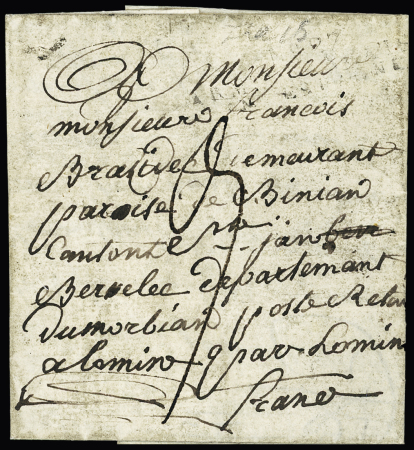 A Monsieur
monsieure francois
demeurant
paroise de Binian
Cantont St jan
Bervelee departemant
dumorbian poste Reta
a lomine par Lomin
france